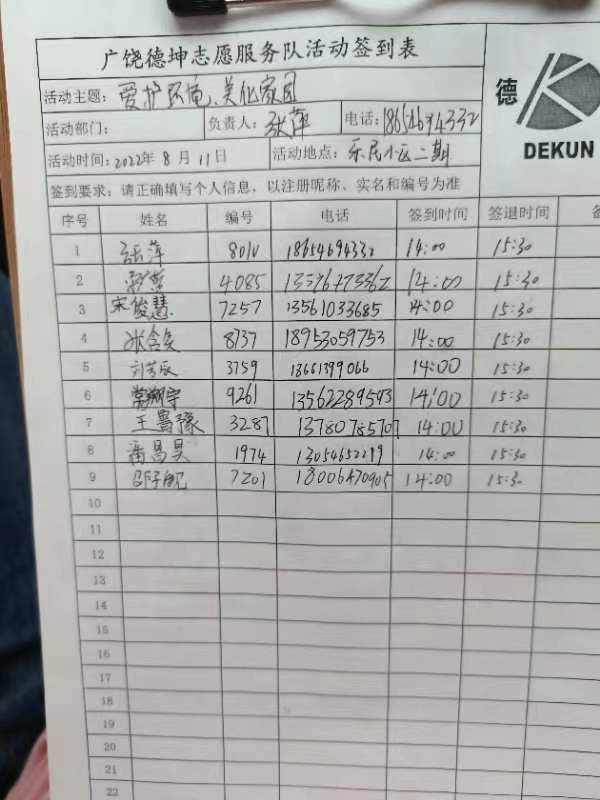 广饶德坤志愿服务队活动签到表
活动主题: 爱护环境、美化家园
活动部门: 负责人: 张萍 电话: 18654694332
活动时间: 2022年8月11日 活动地点: 乐民小区二期
签到要求: 请正确填写个人信息，以注册昵称、实名和编号为准
德
DEKUN
序号 姓名 编号 电话 签到时间 签退时间
1 张萍 8010 18654694332 14:00 15:30
2 4085 14:00 15:30
3 宋俊慧 7257 13561033685 14:00 15:30
4 8737 18953059753 14:00 15:30
5 3759 18661399066 14:00 15:30
6 9261 13562289593 14:00 15:30
7 3287 13780785707 14:00 15:30
8 潘昌昊 1974 13054652299 14:00 15:30
9 7201 18006470905 14:00 15:30
10
11
12
13
14
15
16
17
18
19
20
21
22